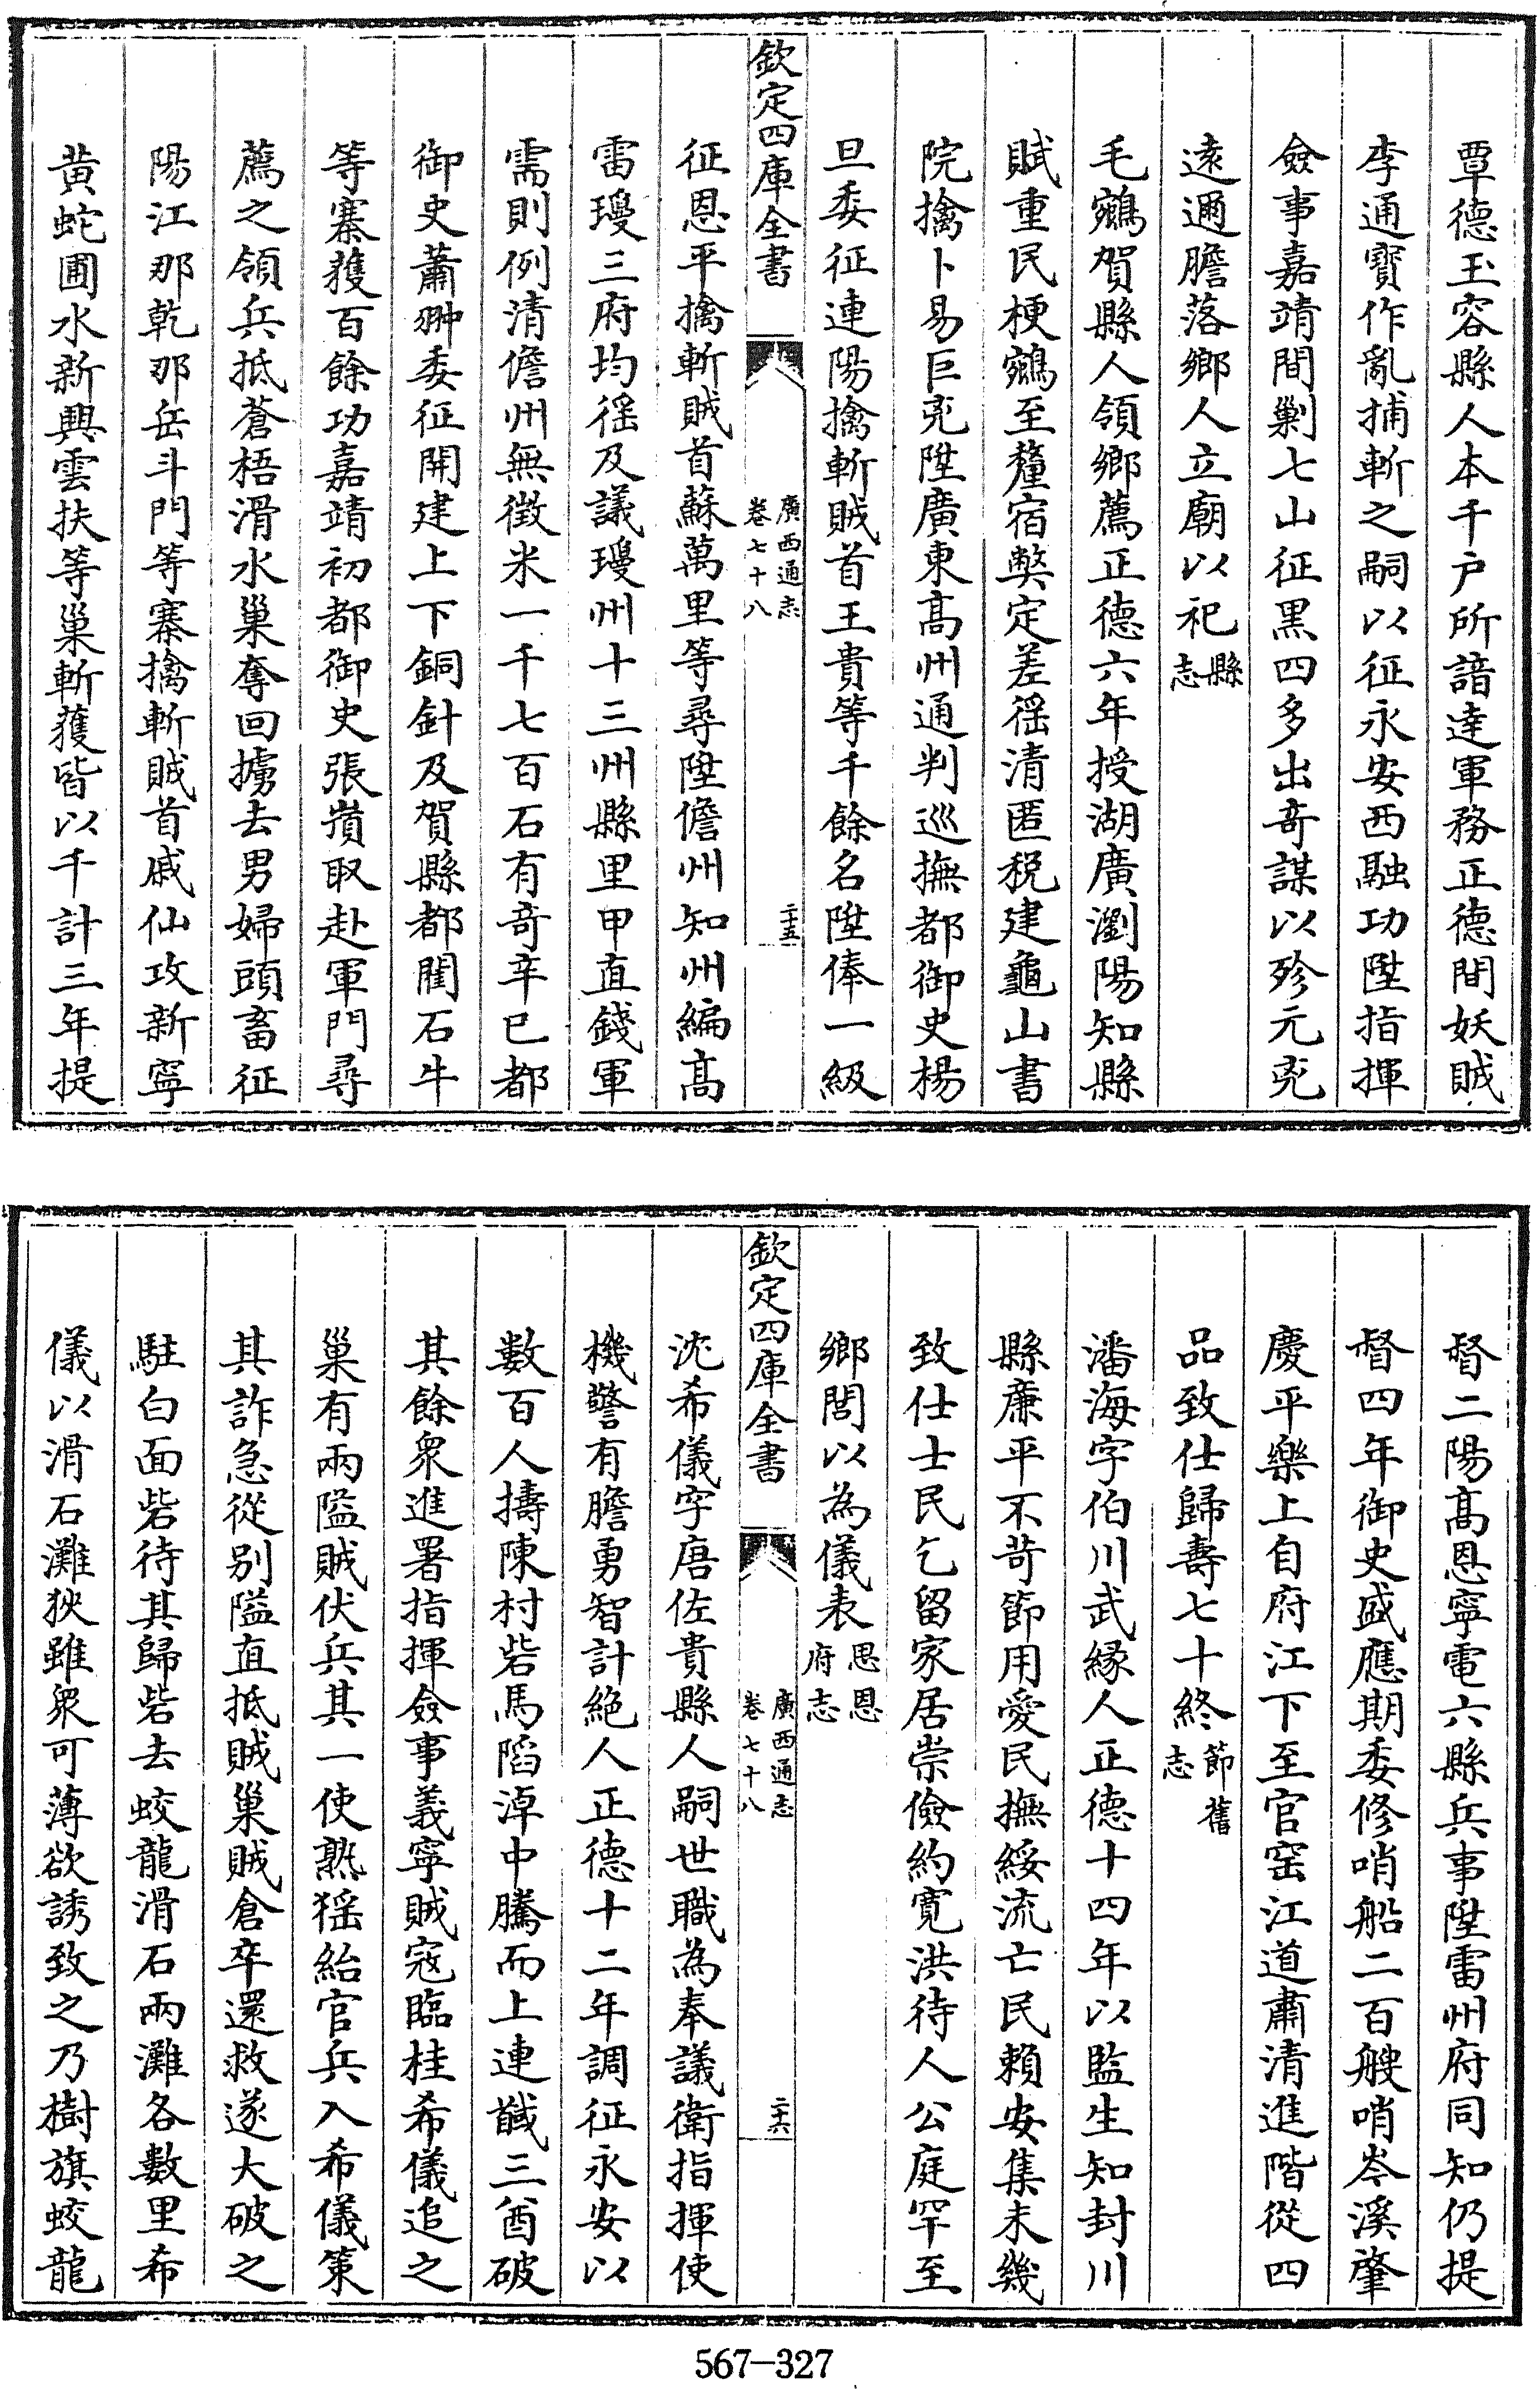 覃德玉容縣人本千户所諳達軍務正德間妖賊
李通寳作亂捕斬之嗣以征永安西融功陞指揮
僉事嘉靖間剿七山征黒四多出竒謀以殄元兇
逺邇膽落鄉人立廟以祀縣志
毛鵷賀縣人領鄉薦正德六年授湖廣瀏陽知縣
賦重民梗鵷至釐宿弊定差徭清匿税建龜山書
院擒卜易巨兇陞廣東髙州通判巡撫都御史楊
旦委征連陽擒斬賊首王貴等千餘名陞俸一級
欽定四庫全書
廣西通志
卷七十八
二十五
征恩平擒斬賊首蘇萬里等尋陞儋州知州編髙
雷瓊三府均徭及議瓊州十三州縣里甲直錢軍
需則例清儋州無徴米一千七百石有竒辛巳都
御史蕭翀委征開建上下銅針及賀縣都閫石牛
等寨獲百餘功嘉靖初都御史張嵿取赴軍門尋
薦之領兵抵蒼梧滑水巢奪回擄去男婦頭畜征
陽江那乾那岳斗門等寨擒斬賊首戚仙攻新寧
黄蛇圃水新興雲扶等巢斬獲皆以千計三年提
督二陽髙恩寧電六縣兵事陞雷州府同知仍提
督四年御史盛應期委修哨船二百艘哨岑溪肇
慶平樂上自府江下至官窑江道肅清進階從四
品致仕歸夀七十終節舊志
潘海字伯川武緣人正德十四年以監生知封川
縣亷平不苛節用愛民撫綏流亡民賴安集未幾
致仕士民乞留家居崇儉約寛洪待人公庭罕至
鄉閭以為儀表思恩府志
欽定四庫全書
廣西通志
卷七十八
二十六
沈希儀字唐佐貴縣人嗣世職為奉議衛指揮使
機警有膽勇智計絶人正德十二年調征永安以
數百人擣陳村砦馬陷淖中騰而上連馘三酋破
其餘衆進署指揮僉事義寧賊冦臨桂希儀追之
巢有兩隘賊伏兵其一使熟猺紿官兵入希儀策
其詐急從别隘直抵賊巢賊倉卒還救遂大破之
駐白面砦待其歸砦去蛟龍滑石兩灘各數里希
儀以滑石灘狹雖衆可薄欲誘致之乃樹旗蛟龍
567-327